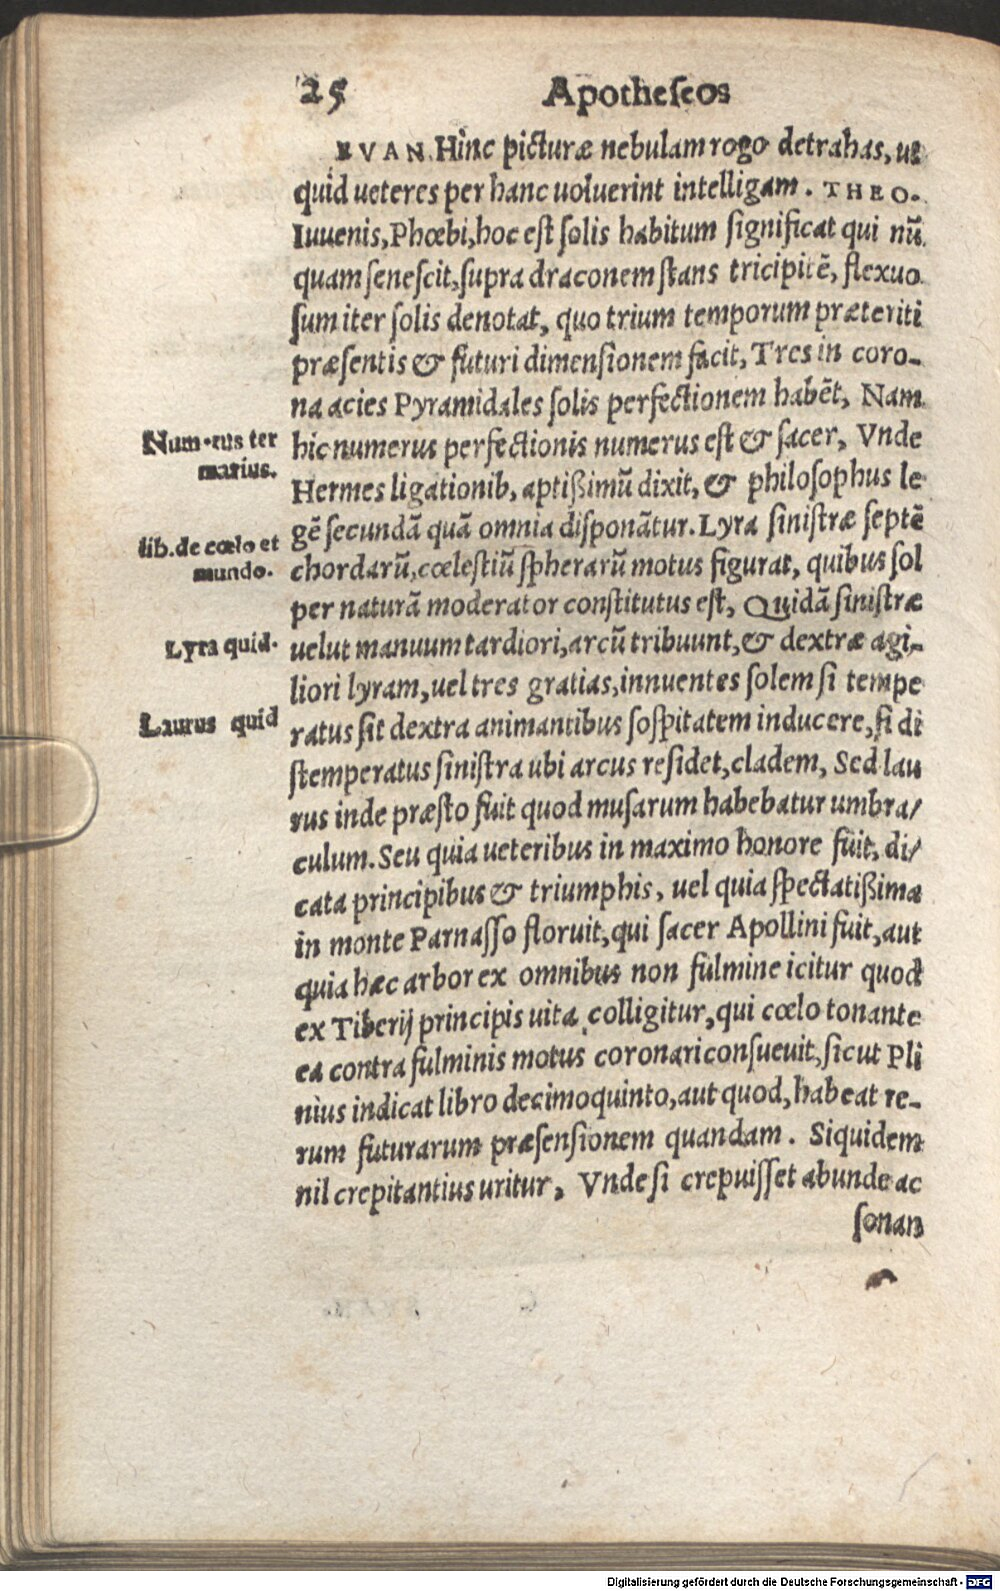 25 Apotheſeos
EVAN. Hinc picturæ nebulam rogo detrahas, ut
quid ueteres per hanc uoluerint intelligam. THEO.
Iuuenis, Phœbi, hoc eſt ſolis habitum ſignificat qui nū
quam ſeneſcit, ſupra draconem ſtans tricipitē, flexuo
ſum iter ſolis denotat, quo trium temporum præteriti
præſentis & futuri dimenſionem facit, Tres in coro-
na acies Pyramidales ſolis perfectionem habēt, Nam
Numerus ter
hic numerus perfectionis numerus eſt & ſacer, Vnde
narius.
Hermes ligationib, aptißimū dixit, & philoſophus le
gē ſecundā quā omnia diſponātur. Lyra ſiniſtræ ſeptē
lib. de cœlo et
chordarū, cœleſtiū ſpherarū motus figurat, quibus ſol
mundo.
per naturā moderator conſtitutus eſt, Quidā ſiniſtræ
Lyra quid.
uelut manuum tardiori, arcū tribuunt, & dextræ agi-
liori lyram, uel tres gratias, innuentes ſolem ſi tempe
Laurus quid
ratus ſit dextra animantibus ſoſpitatem inducere, ſi di
ſtemperatus ſiniſtra ubi arcus reſidet, cladem, Sed lau
rus inde præſto fuit quod muſarum habebatur umbra/
culum. Seu quia ueteribus in maximo honore fuit, di/
cata principibus & triumphis, uel quia ſpectatißima
in monte Parnaſſo floruit, qui ſacer Apollini fuit, aut
quia hæc arbor ex omnibus non fulmine icitur quod
ex Tiberij principis uita colligitur, qui cœlo tonante
ea contra fulminis motus coronari conſueuit, ſicut Pli
nius indicat libro decimoquinto, aut quod, habeat re-
rum futurarum præſenſionem quandam. Siquidem
nil crepitantius uritur, Vnde ſi crepuiſſet abunde ac
ſonan
Digitalisierung gefördert durch die Deutsche Forschungsgemeinschaft - DFG